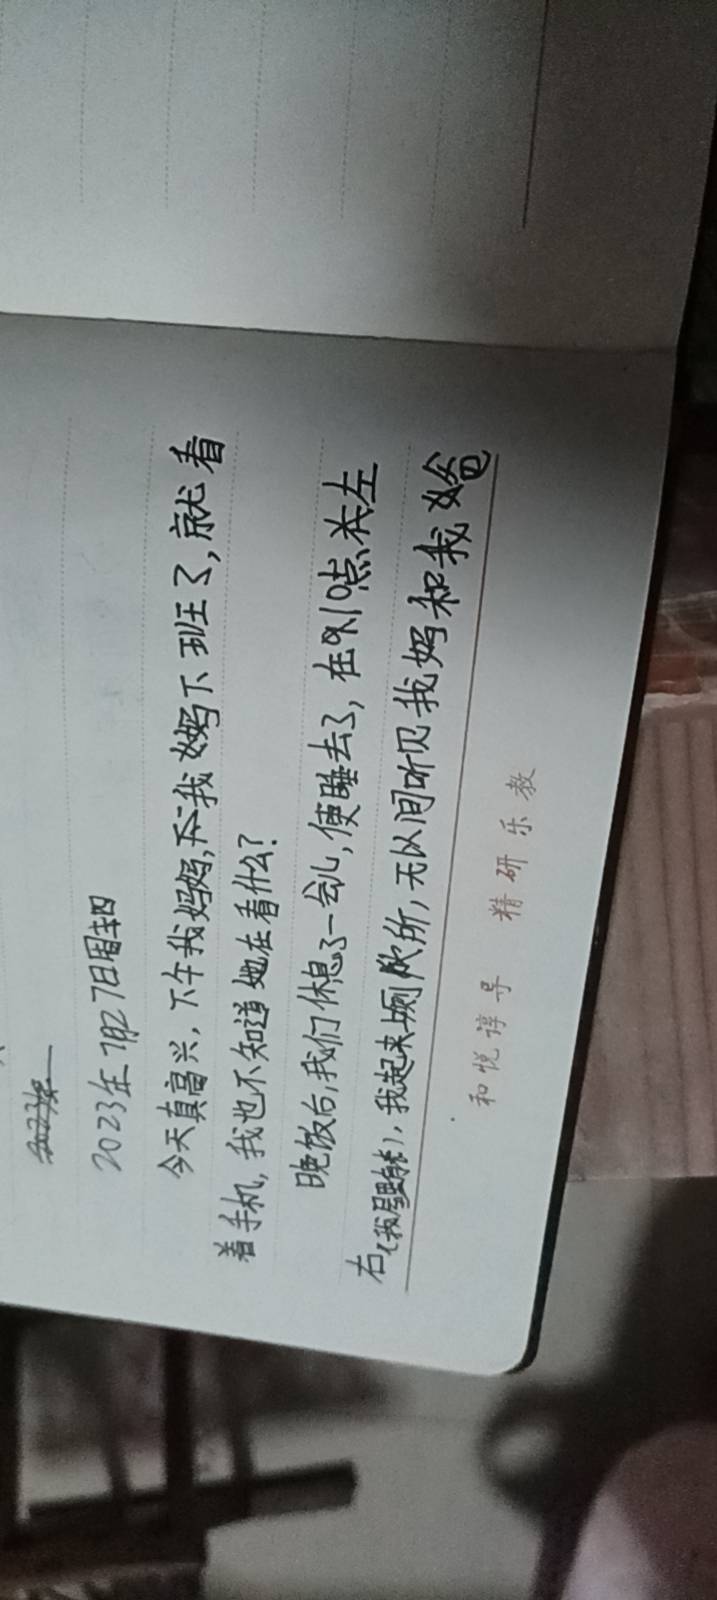 2023年7月27日周四
今天真高兴，下午我妈妈，我妈下班了，就看
着手机，我也不知道她在看什么？
晚饭后，我们休息了一会儿，便睡去了，在9、10点左
右（我屋里有表），我起来上厕所，无以间听见我妈和我爸
和悦谆导 精研乐教